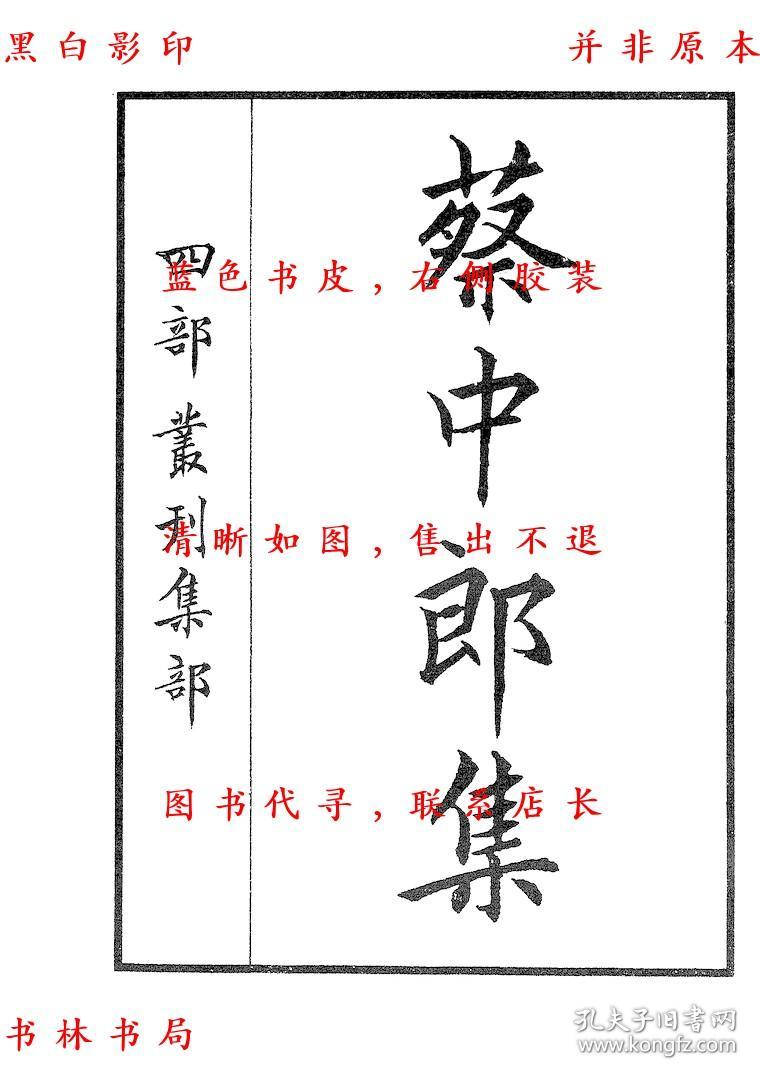 黑白影印
并非原本
蔡中郎集
四部叢刊集部
蓝色书皮,右侧胶装
清晰如图,售出不退
图书代寻,联系店长
书林书局
孔夫子旧书网
www.kongfz.com